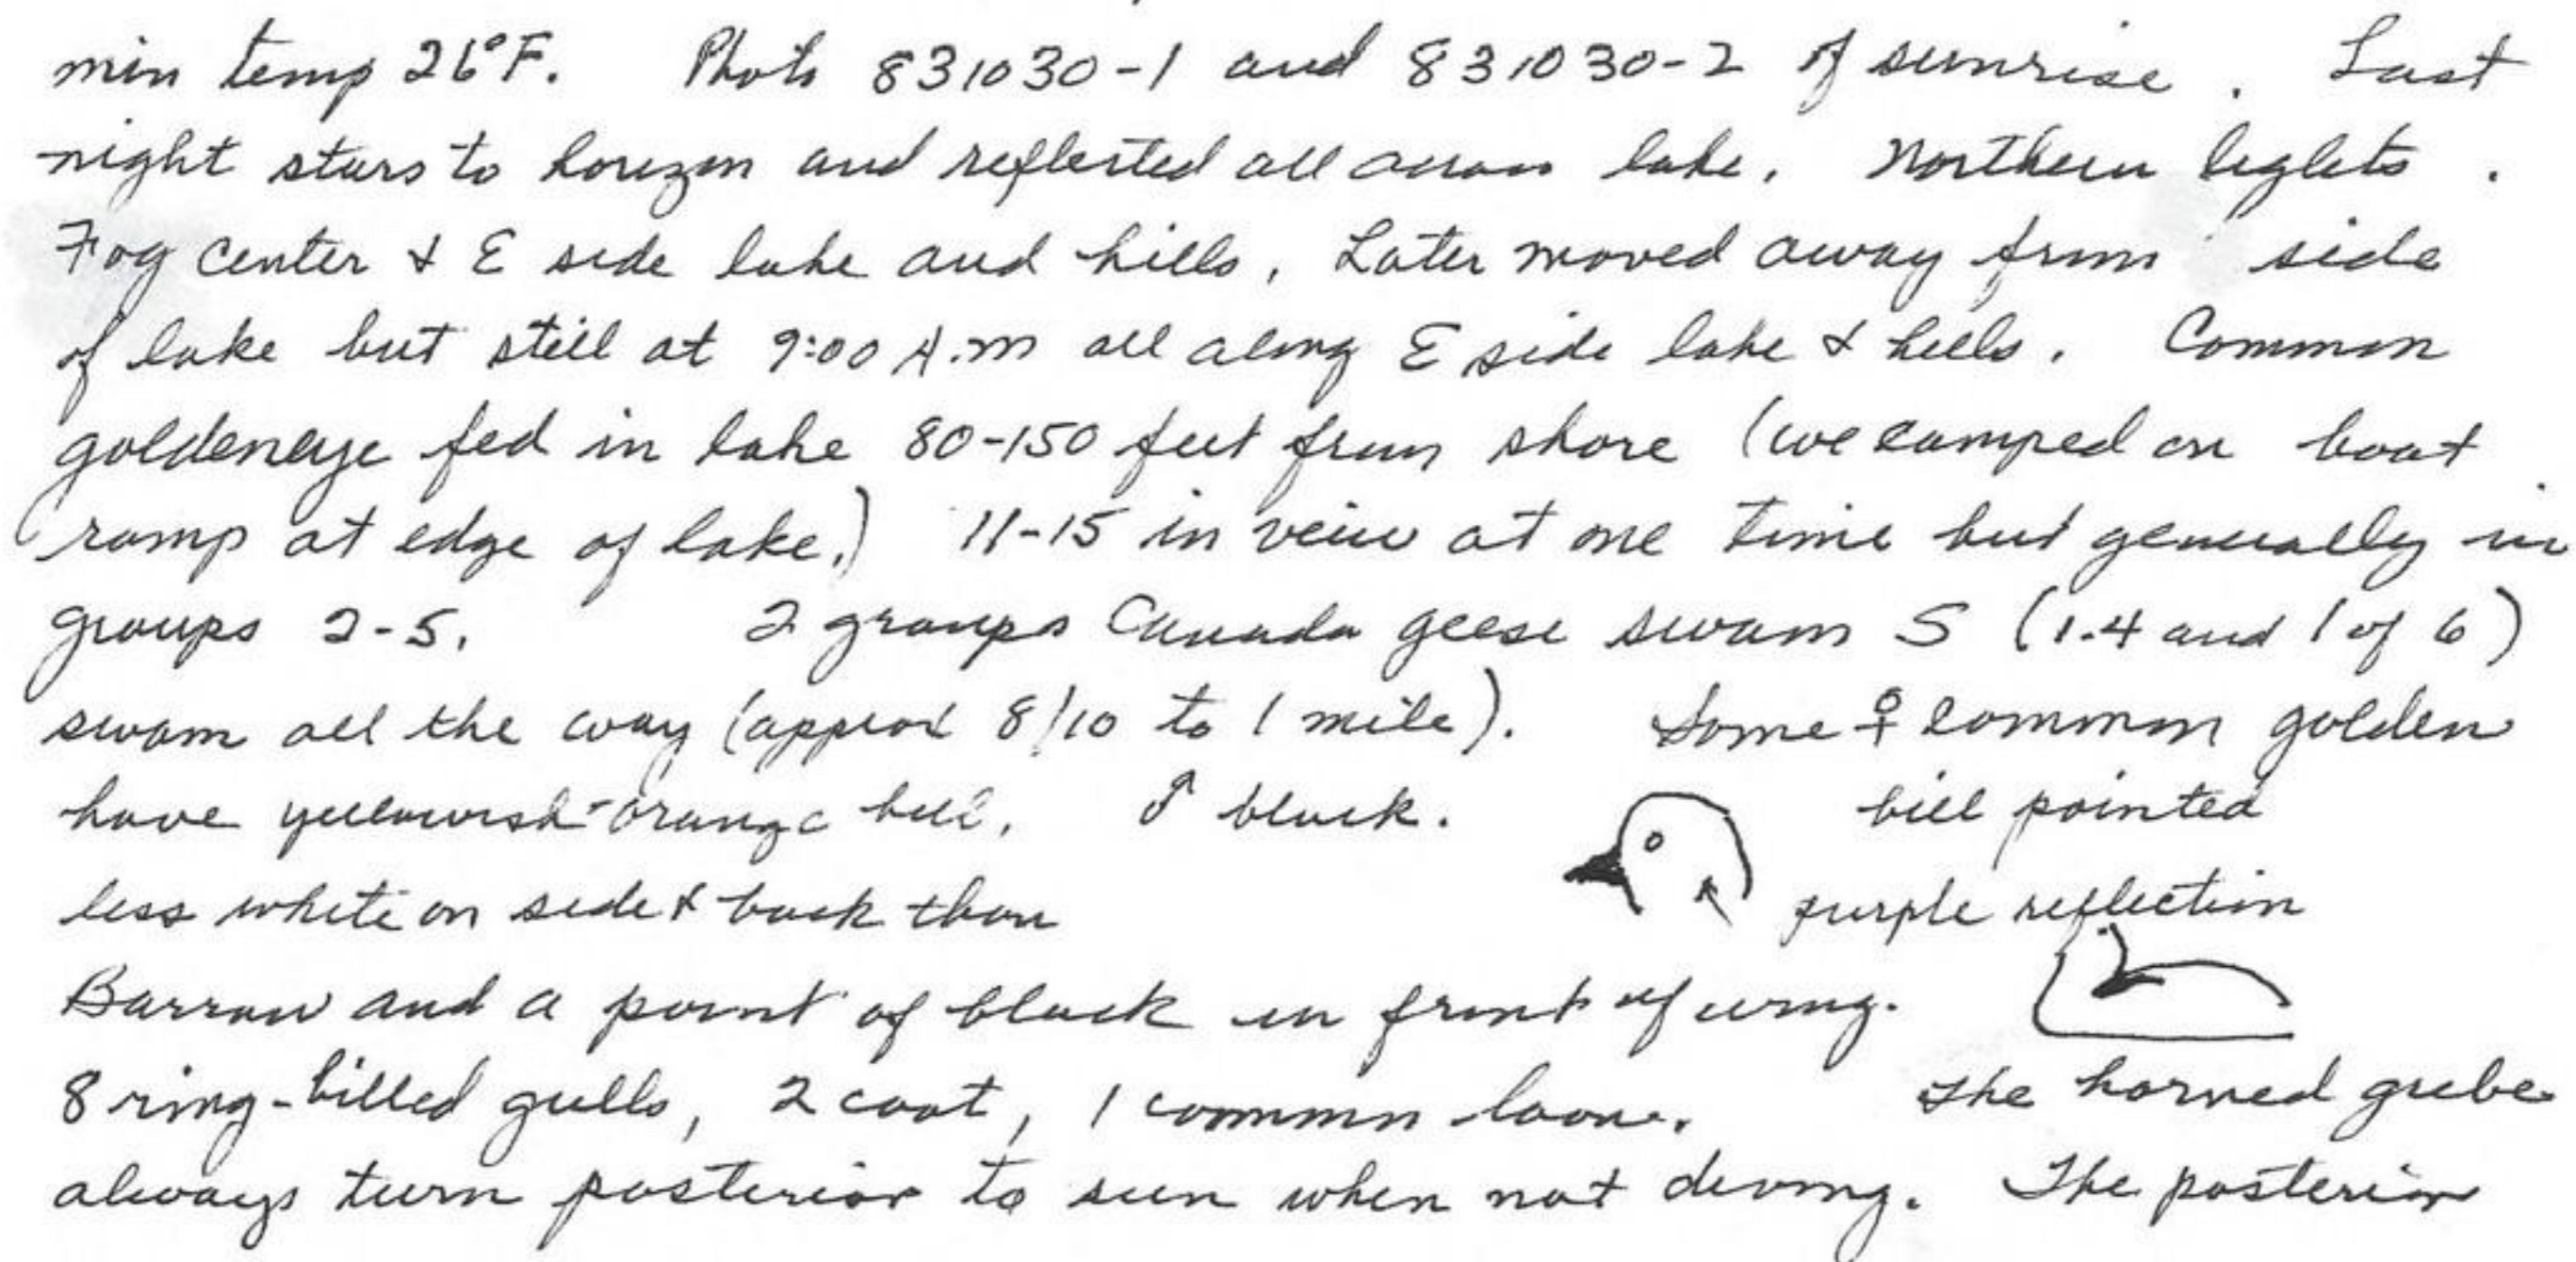 min temp 26°F. Photo 831030-1 and 831030-2 of sunrise. Last
night stars to horizon and reflected all across lake. Northern lights.
Fog center & E side lake and hills. Later moved away from side
of lake but still at 9:00 A.m all along E side lake & hills. Common
goldeneye fed in lake 80-150 feet from shore (we camped on boat
ramp at edge of lake.) 11-15 in veiw at one time but generally in
groups 2-5. 2 groups Canada geese swam S (1-4 and 1 of 6)
swam all the way (approx 8/10 to 1 mile). Some ♀ common golden
have yellowish-orange bill. ♂ black. bill pointed
less white on side & back than purple reflection
Barrow and a point of black in front of wing.
8 ring-billed gulls, 2 coot, 1 common loon. The horned grebe
always turn posterior to sun when not diving. The posterior